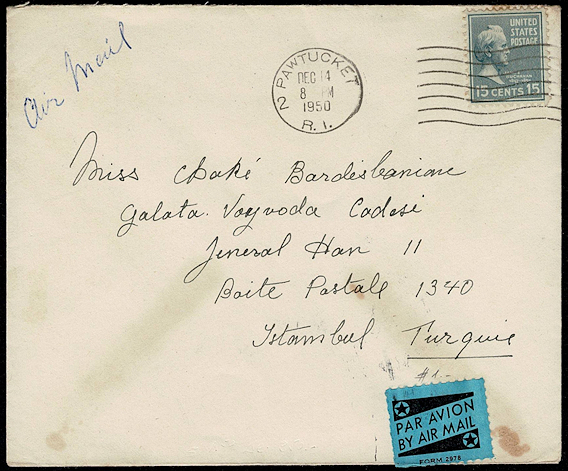 Air Mail
2 PAWTUCKET
DEC 14
8 PM
1950
R. I.
UNITED
STATES
POSTAGE
BUCHANAN
15 CENTS 15
Miss
Galata. Voyvoda Cadesi
Jeneral Han 11
Boite Postale 1340
Istambul Turquie
PAR AVION
BY AIR MAIL
FORM 2978